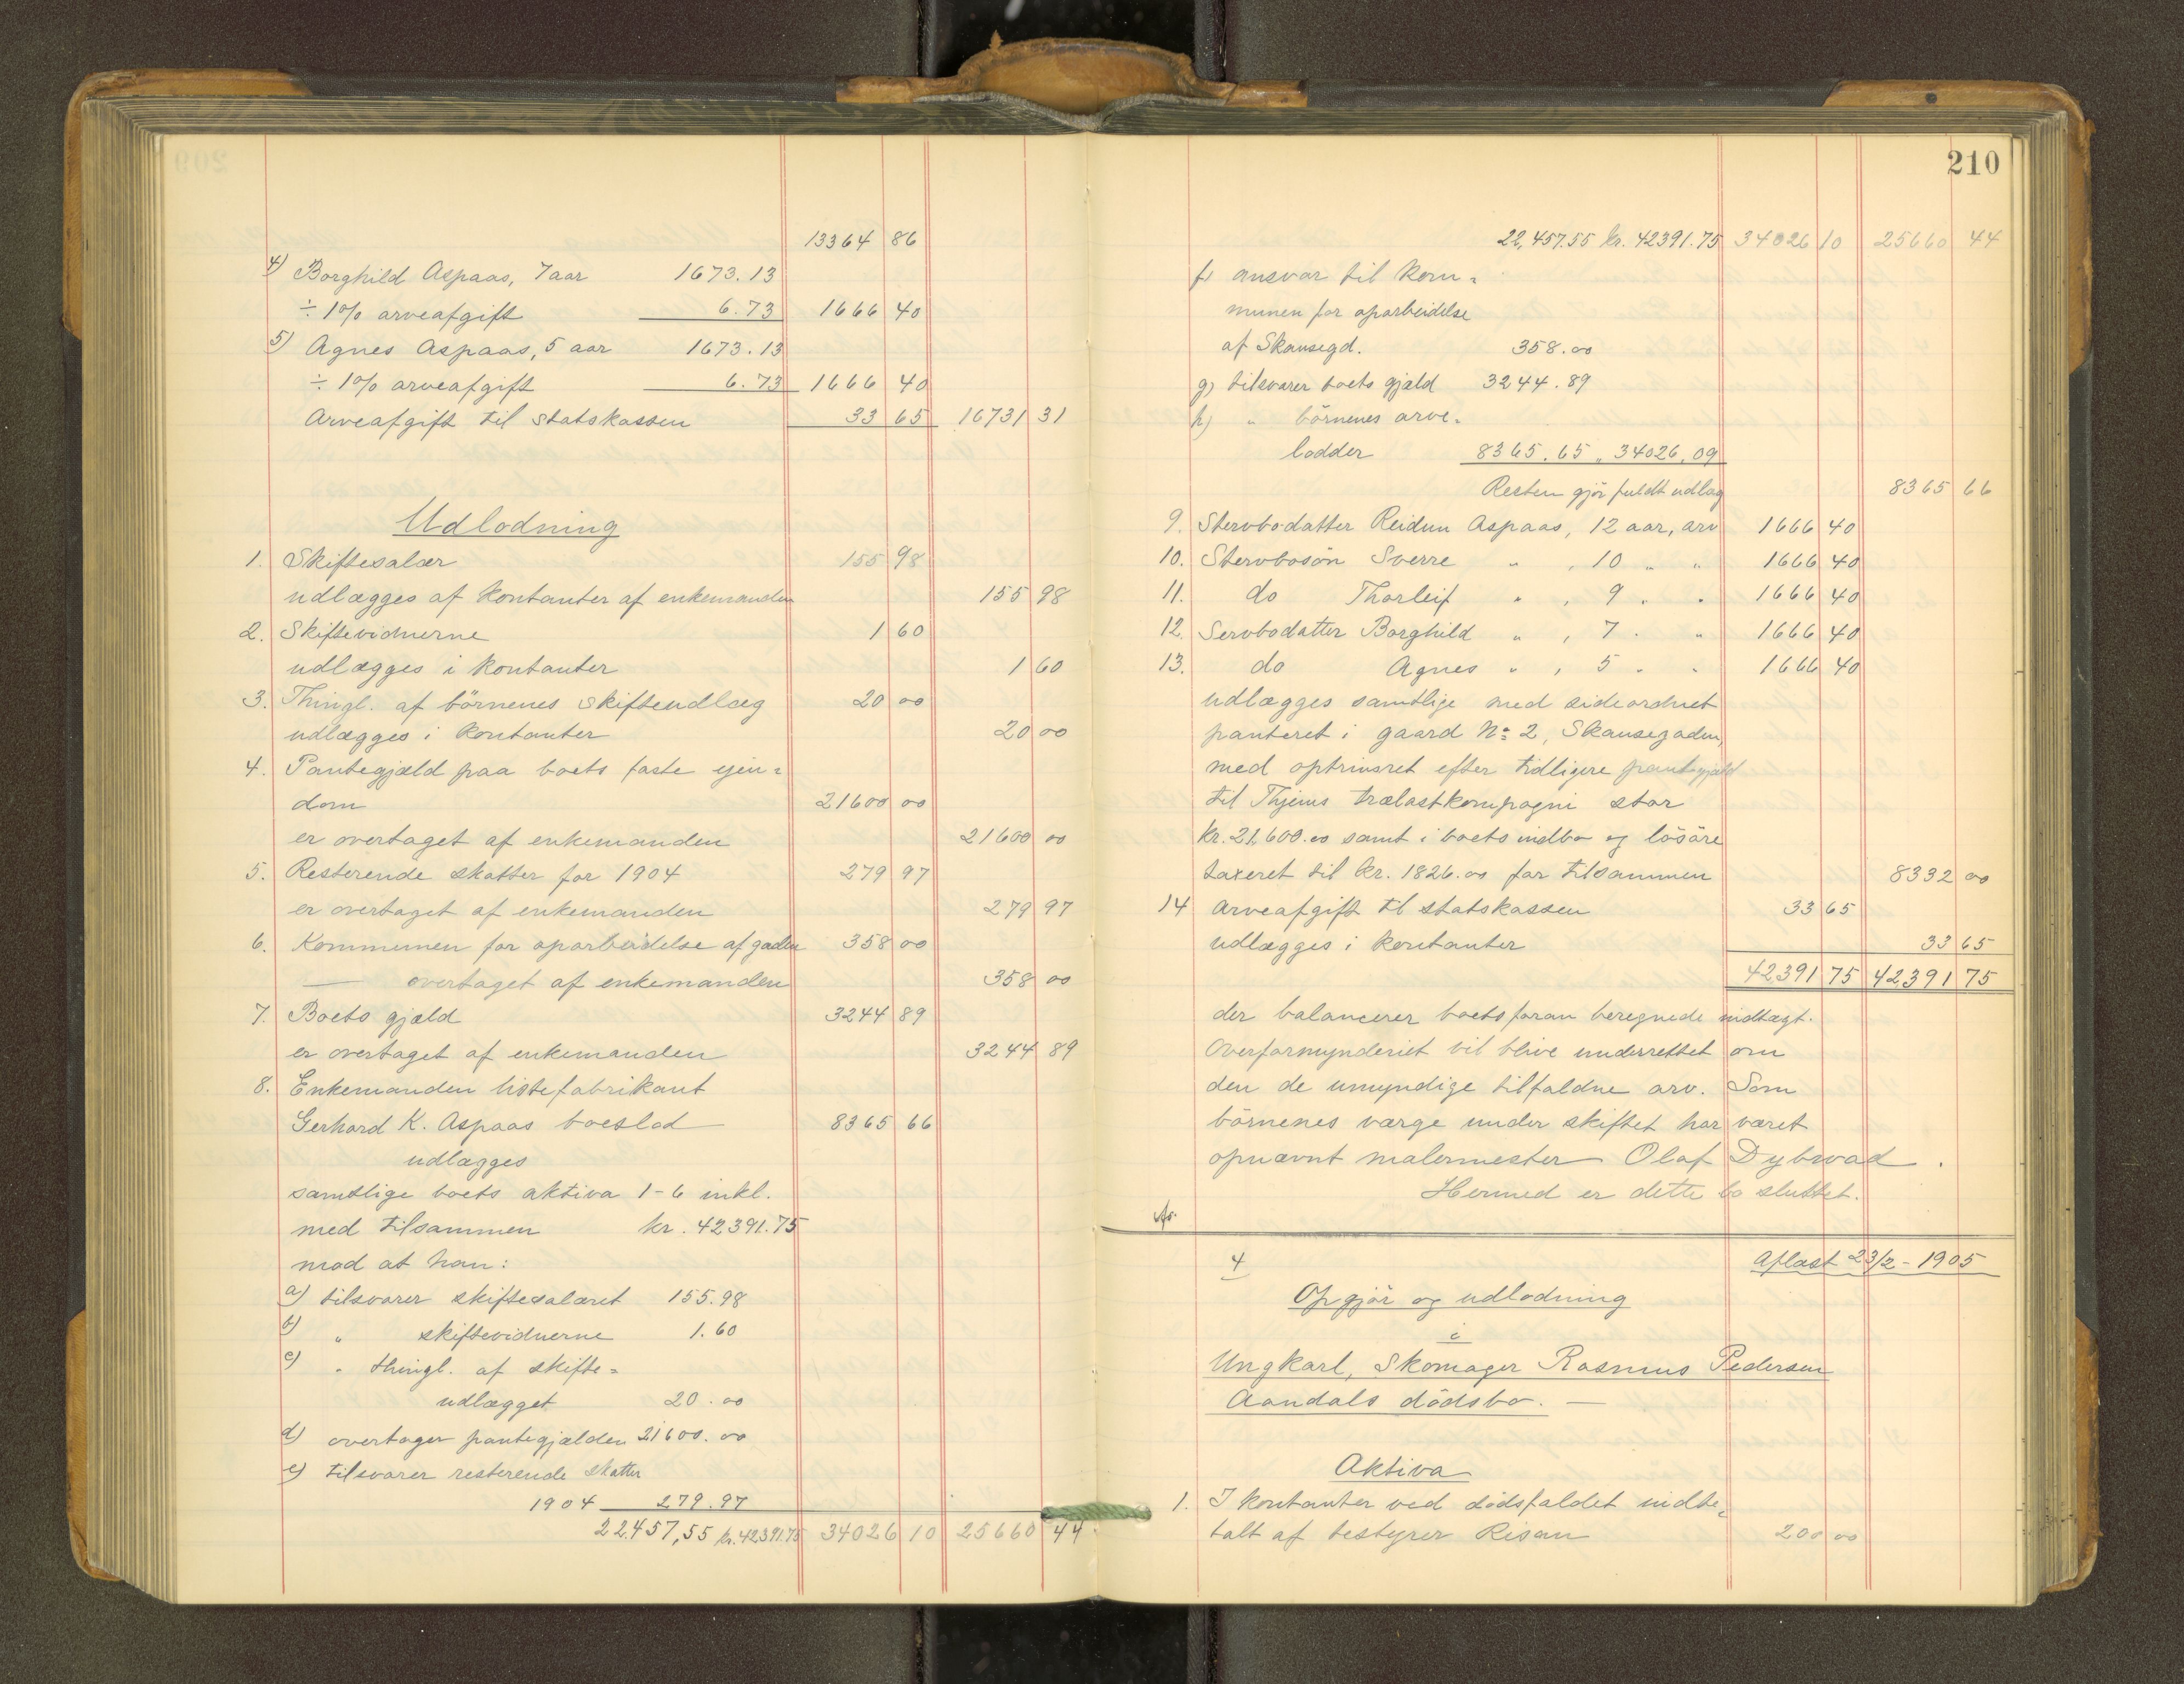 13364 86
4) Borghild Aspaas, 7 aar 1673.13
÷ 1% arveafgift 6.73 1666 40
5) Agnes Aspaas, 5 aar 1673.13
÷ 1% arveafgift 6.73 1666 40
Arveafgift til statskassen 33 65 16731 31
Udlodning
1. Skiftesalær 155 98
udlægges af kontanter af enkemanden 155 98
2. Skiftevidnerne 1 60
udlægges i kontanter 1 60
3. Thingl. af börnenes skifteudlæg 20 00
udlægges i kontanter 20 00
4. Pantegjæld paa boets faste ejen=
dom 21600 00
er overtaget af enkemanden 21600 00
5. Resterende skatter for 1904 279 97
er overtaget af enkemanden 279 97
6. Kommunen for oparbeidelse af gaden 358 00
— overtaget af enkemanden 358 00
7. Boets gjæld 3244 89
er overtaget af enkemanden 3244 89
8. Enkemanden listefabrikant
Gerhard K. Aspaas boeslod 8365 66
udlægges
samtlige boets aktiva 1-6 inkl.
med tilsammen kr. 42391.75
mod at han:
a) tilsvarer skiftesalæret 155.98
b) " skiftevidnerne 1.60
c) " thingl. af skifte=
udlægget 20.00
d) overtager pantegjælden 21600.00
e) tilsvarer resterende skatter
1904 279.97
22.457,55 kr. 42391.75 34026 10 25660 44
210
22,457.55 kr. 42391.75 34026 10 25660 44
f) ansvar til kom=
munen for oparbeidelse
af Skansegd. 358.00
g) tilsvarer boets gjæld 3244.89
h) " börnenes arve=
lodder 8365.65 " 34026.09
Resten gjör fuldt udlæg 8365 66
9. Stervbodatter Reidun Aspaas, 12 aar, arv 1666 40
10. Stervbosön Sverre " , 10 " " 1666 40
11. do Thorleif " , 9 " " 1666 40
12. Servbodatter Borghild " , 7 " " 1666 40
13. do Agnes " , 5 " " 1666 40
udlægges samtlige med sideordnet
panteret i gaard No 2, Skansegaden,
med optrinsret efter tidligere pantegjæld
til Thjems trælastkompagni stor
kr. 21,600.00 samt i boets indbo og lösöre
taxeret til kr. 1826.00 for tilsammen 8332 00
14 Arveafgift til statskassen 33 65
udlægges i kontanter 33 65
42391 75 42391 75
der balancerer boets foran beregnede indtægt.
Overformynderiet vil blive underrettet om
den de umyndige tilfaldne arv. Som
börnenes værge under skiftet har været
opnævnt malermester Olaf Dybwad.
Hermed er dette bo sluttet.
4 Aflæst 23/2-1905
Opgjör og udlodning
i
Ungkarl, Skomager Rasmus Pedersen
Aandals dödsbo. —
Aktiva
1. I kontanter ved dödsfaldet indbe=
talt af bestyrer Risan 200 00